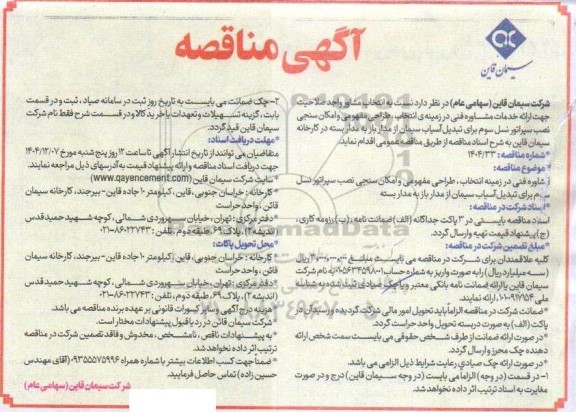 سیمان قاین
آگهی مناقصه
شرکت سیمان قاین (سهامی عام) در نظر دارد نسبت به انتخاب مشاور واجد صلاحیت
جهت ارائه خدمات مشاوره فنی در زمینه ی انتخاب، طراحی مفهومی و امکان سنجی
نصب سپراتور نسل سوم برای تبدیل آسیاب سیمان از مدار باز به مدار بسته در کارخانه
سیمان قاین به شرح اسناد مناقصه از طریق مناقصه عمومی اقدام نماید.
*شماره مناقصه: ۱۴۰۴/۳۳
*موضوع مناقصه:
مشاوره فنی در زمینه انتخاب، طراحی مفهومی و امکان سنجی نصب سپراتور نسل
سوم برای تبدیل آسیاب سیمان از مدار باز به مدار بسته
*اسناد شرکت در مناقصه:
اسناد مناقصه بایستی در ۳ پاکت جداگانه (الف) ضمانت نامه، (ب) رزومه کاری،
(ج) پیشنهاد قیمت تهیه و ارسال گردد.
*مبلغ تضمین شرکت در مناقصه:
کلیه علاقمندان برای شرکت در مناقصه می بایست مبلغ ۳.۰۰۰.۰۰۰.۰۰۰ ریال
(سه میلیارد ریال) را به صورت واریز به شماره حساب به نام شرکت
سیمان قاین یا ارائه ضمانت نامه بانکی معتبر و یا چک صیادی ثبت شده به شناسه
ملی ارائه نمایند.
*ضمانت شرکت در مناقصه الزاماً باید تحویل امور مالی شرکت گردیده و رسید آن در
پاکت (الف) به صورت دربسته تحویل واحد حراست گردد.
*در صورت ارائه ضمانت از طرف شخص حقوقی می بایست سمت شخص ارائه
دهنده چک محرز و ارسال گردد.
*در صورت ارائه چک صیادی رعایت شرایط ذیل الزامی می باشد.
۱- در قسمت (در وجه) الزاما می بایست (در وجه سیمان قاین) درج و در صورت
مغایرت به اسناد ترتیب اثر داده نخواهد شد.
۲- چک ضمانت می بایست به تاریخ روز ثبت در سامانه صیاد، ثبت و در قسمت
بابت، گزینه تسهیلات و تعهدات یا خرید کالا و در قسمت شرح فقط نام شرکت
سیمان قاین قید گردد.
*مهلت دریافت اسناد:
متقاضیان می توانند از تاریخ انتشار آگهی تا ساعت ۱۲ روز پنج شنبه مورخ ۱۴۰۴/۱۲/۰۷
جهت دریافت اسناد مناقصه و ارائه پیشنهاد قیمت به آدرسهای ذیل مراجعه نمایند.
*سایت شرکت سیمان قاین (www.qayencement.com)
*کارخانه: خراسان جنوبی، قاین، کیلومتر ۱۰ جاده قاین - بیرجند، کارخانه سیمان
قائن، واحد حراست
*دفتر مرکزی: تهران، خیابان سهروردی شمالی، کوچه شهید حمید قدس
(اندیشه ۲)، پلاک ۶۹، طبقه دوم، تلفن: ۸۶۰۲۲۷۴۳-۰۲۱
*محل تحویل پاکات:
*کارخانه: خراسان جنوبی، قاین، کیلومتر ۱۰ جاده قاین - بیرجند، کارخانه سیمان
قائن، واحد حراست
*دفتر مرکزی: تهران، خیابان سهروردی شمالی، کوچه شهید حمید قدس
(اندیشه ۲)، پلاک ۶۹، طبقه دوم، تلفن: ۸۶۰۲۲۷۴۳-۰۲۱
*هزینه درج آگهی و سایر کسورات قانونی بر عهده برنده مناقصه می باشد.
*شرکت سیمان قاین در رد یا قبول پیشنهادات مختار است.
*به پیشنهادات ناقص، نامشخص، مخدوش و فاقد تضمین شرکت در مناقصه
ترتیب اثر داده نخواهد شد.
*ضمنا جهت کسب اطلاعات بیشتر با شماره همراه ۰۹۳۵۵۵۷۵۹۹۶ (آقای مهندس
حسین زاده) تماس حاصل فرمایید.
شرکت سیمان قاین (سهامی عام)